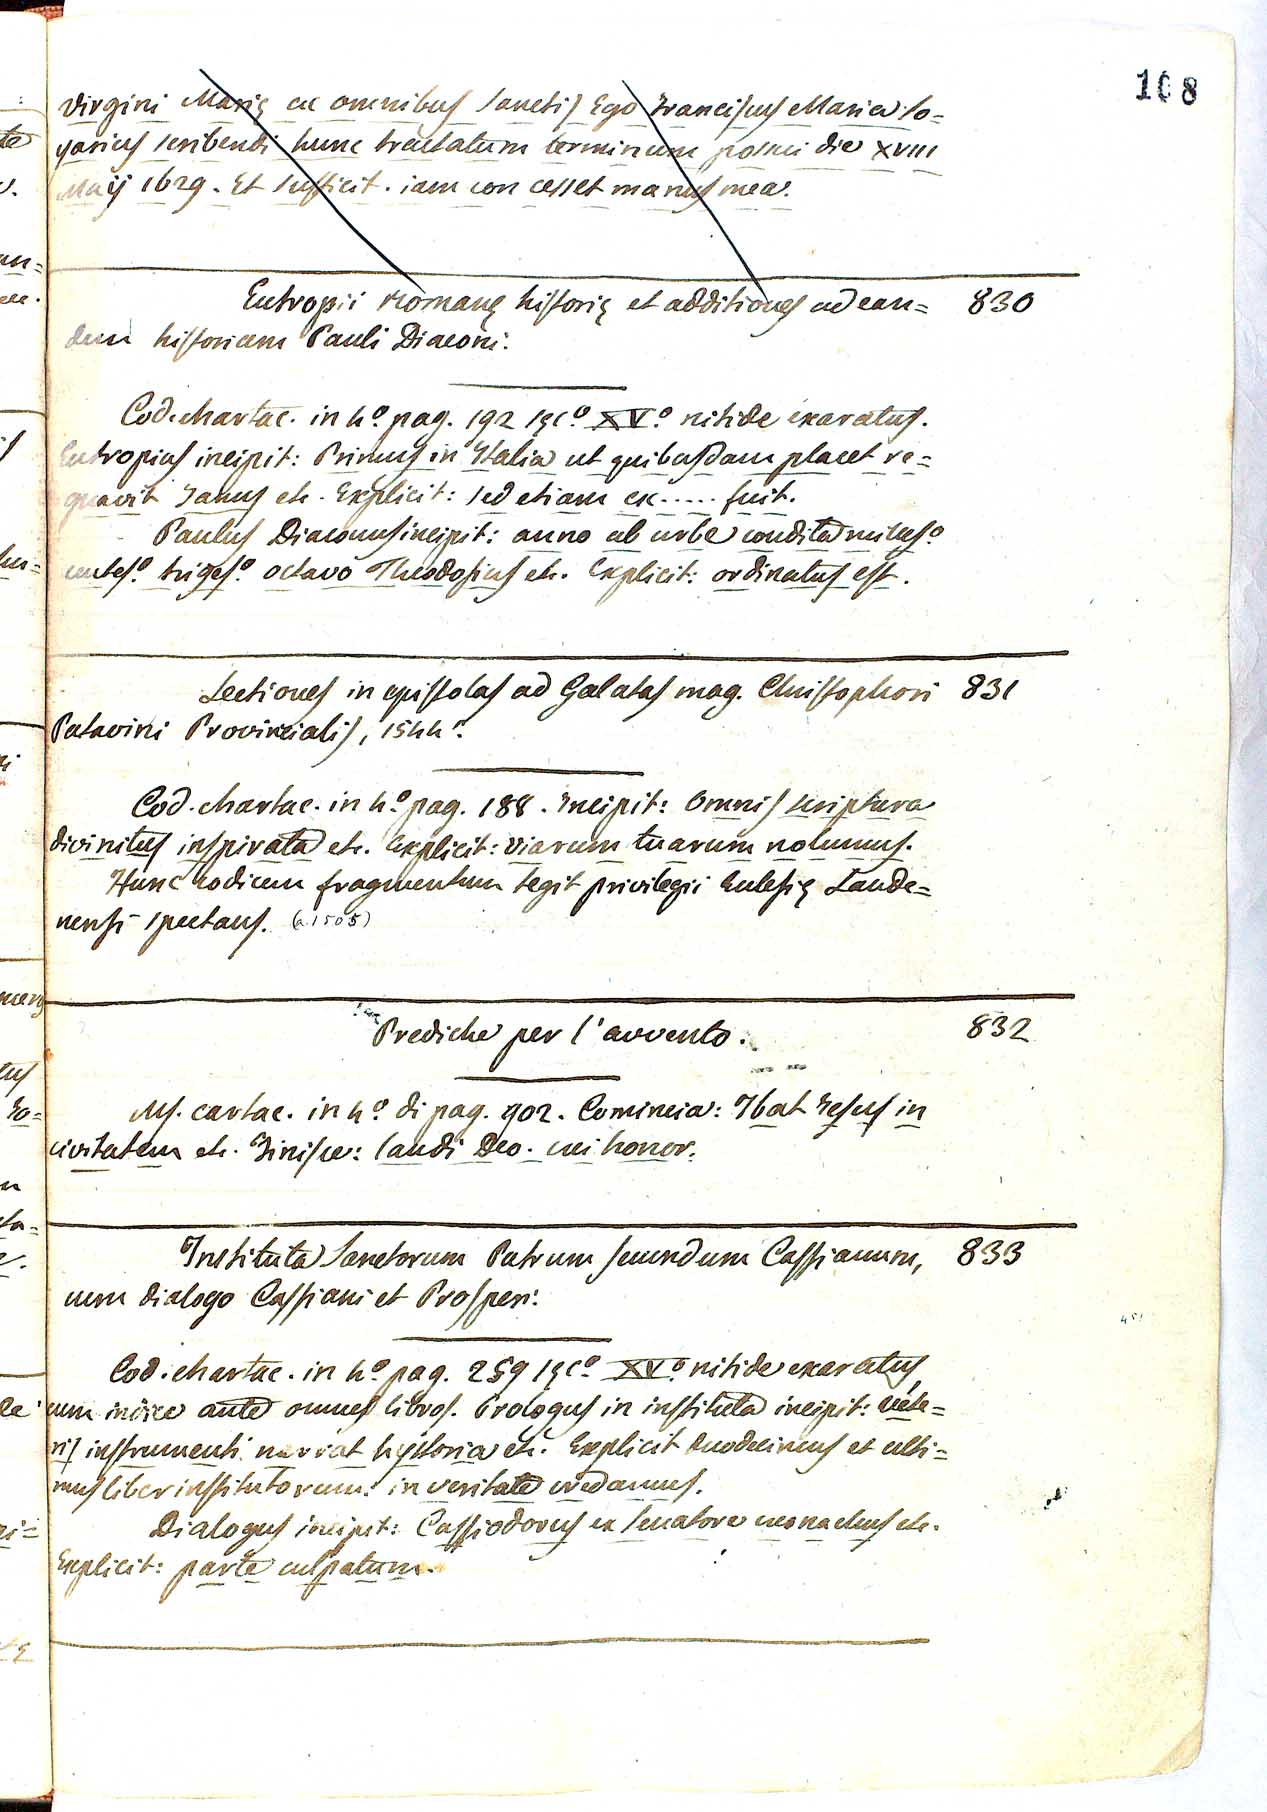 108
virgini Marię ac omnibus sanctis Ego Franciscus Maria So=
yarius scribendi hunc tractatum terminum posui die XVIII
Maij 1629. Et sufficit. iam con cesset manus mea.
Eutropii Romanę historię et additiones ad ean= 830
dem historiam Pauli Diaconi.
Cod. chartac. in 4.º pag. 192 sęc.º XV.º nitide exaratus.
Eutropius incipit: Primus in Italia ut quibusdam placet re=
gnavit Janus etc. Explicit: sed etiam ex ..... fuit.
Paulus Diaconus incipit: anno ab urbe condita milles.º
centes.º triges.º octavo Theodosius etc. Explicit: ordinatus est.
Lectiones in epistolas ad Galatas mag. Christophori 831
Patavini Provincialis, 1544.
Cod. chartac. in 4.º pag. 188. Incipit: Omnis scriptura
divinitus inspirata etc. Explicit: viarum tuarum nolumus.
Hunc codicem fragmentum tegit privilegii Eclesię Laude=
nensi spectans. (a. 1505)
Prediche per l'avvento. 832
Ms. cartac. in 4.º di pag. 902. Comincia: Ibat Jesus in
civitatem etc. Finisce: laudi Deo. cui honor.
Instituta Sanctorum Patrum secundum Cassianum, 833
cum dialogo Cassiani et Prosperi.
Cod. chartac. in 4.º pag. 259 sęc.º XV.º nitide exaratus,
cum indice ante omnes libros. Prologus in instituta incipit: vete=
ris instrumenti narrat hystoria etc. Explicit duodecimus et ulti=
mus liber institutorum: in veritate credamus.
Dialogus incipit: Cassiodorus ex senatore monachus etc.
Explicit: parte culpatum.